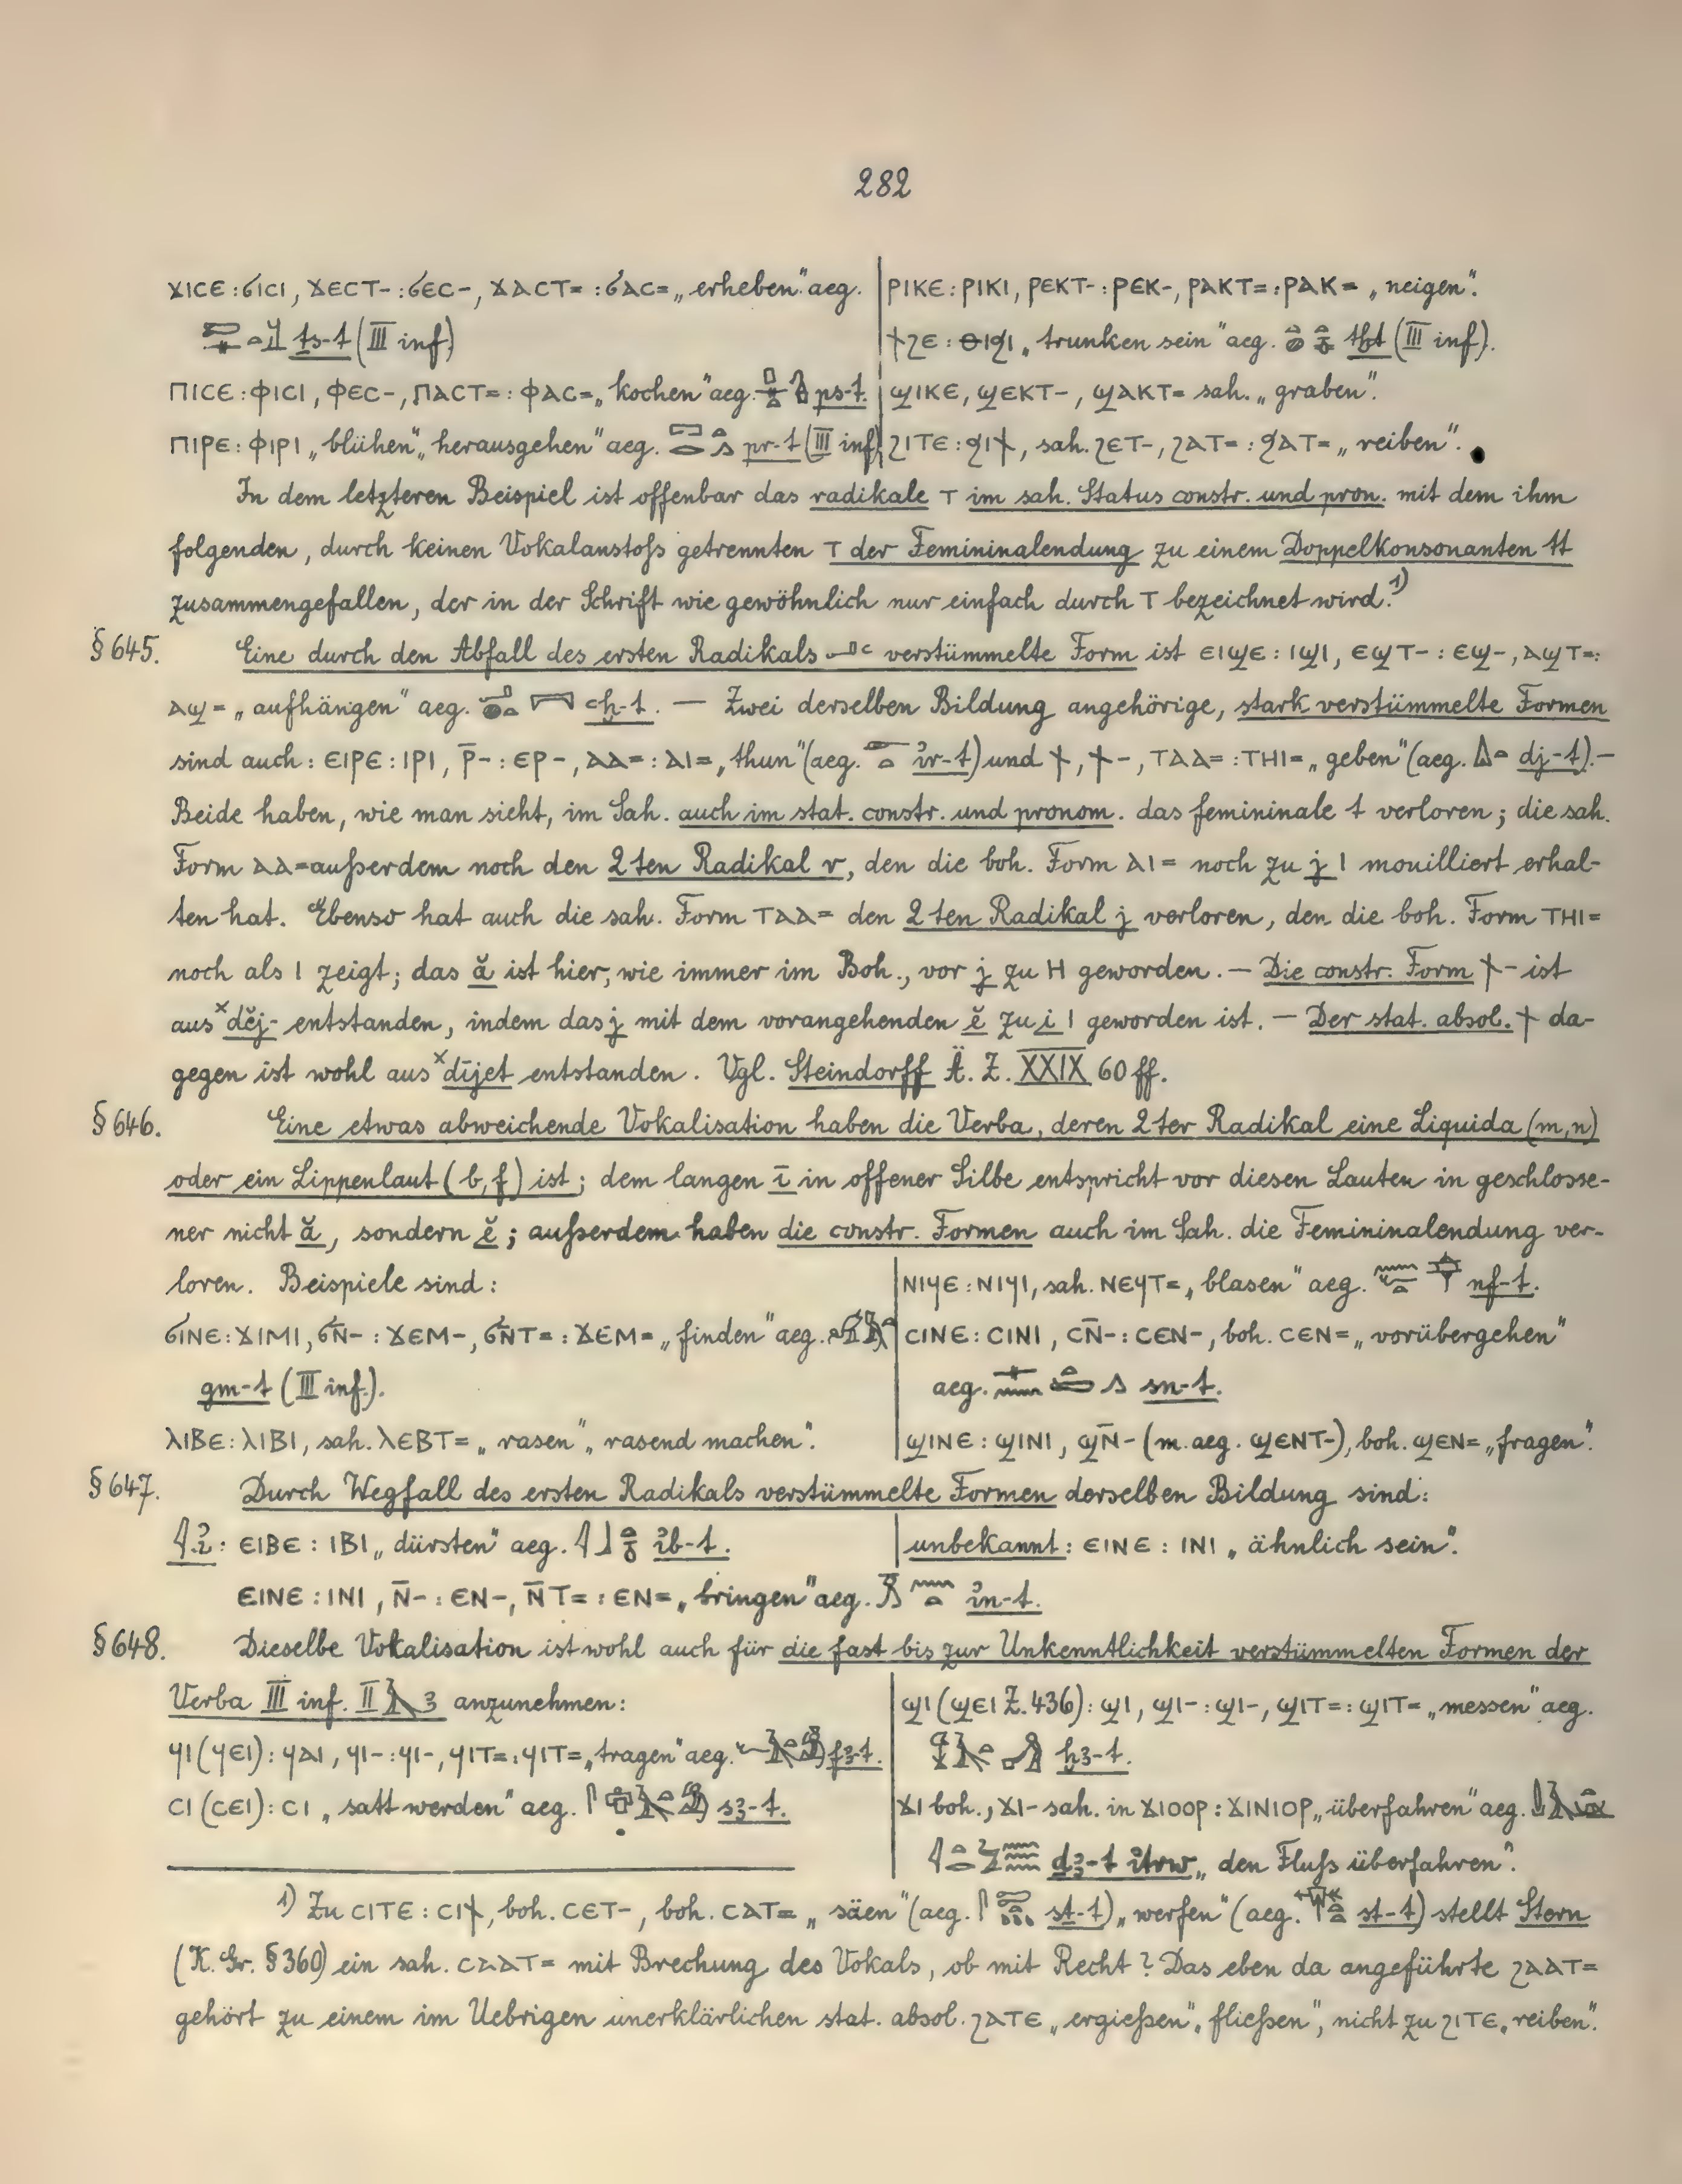 282
ϫⲓⲥⲉ : ϭⲓⲥⲓ, ϫⲉⲥⲧ- : ϭⲉⲥ-, ϫⲁⲥⲧ= : ϭⲁⲥ= „erheben“ aeg.
ṯs-t (III inf)
ⲡⲓⲥⲉ : ⲫⲓⲥⲓ, ⲫⲉⲥ-, ⲡⲁⲥⲧ= : ⲫⲁⲥ= „kochen“ aeg. ps-t.
ⲡⲓⲣⲉ : ⲫⲓⲣⲓ „blühen“, „herausgehen“ aeg. pr-t (III inf)
ⲣⲓⲕⲉ : ⲣⲓⲕⲓ, ⲣⲉⲕⲧ- : ⲣⲉⲕ-, ⲣⲁⲕⲧ= : ⲣⲁⲕ= „neigen“.
ϯϩⲉ : ⲑⲓϧⲓ „trunken sein“ aeg. tḫt (III inf).
ϣⲓⲕⲉ, ϣⲉⲕⲧ-, ϣⲁⲕⲧ= sah. „graben“.
ϩⲓⲧⲉ : ϧⲓϯ, sah. ϩⲉⲧ-, ϩⲁⲧ= : ϧⲁⲧ= „reiben“.
In dem letzteren Beispiel ist offenbar das radikale ⲧ im sah. Status constr. und pron. mit dem ihm
folgenden, durch keinen Vokalanstoß getrennten ⲧ der Femininalendung zu einem Doppelkonsonanten tt
zusammengefallen, der in der Schrift wie gewöhnlich nur einfach durch ⲧ bezeichnet wird.¹)
§645. Eine durch den Abfall des ersten Radikals ꜥ verstümmelte Form ist ⲉⲓϣⲉ : ⲓϣⲓ, ⲉϣⲧ- : ⲉϣ-, ⲁϣⲧ= :
ⲁϣ= „aufhängen“ aeg. ꜥḫ-t. — Zwei derselben Bildung angehörige, stark verstümmelte Formen
sind auch : ⲉⲓⲣⲉ : ⲓⲣⲓ, ⲣ̄- : ⲉⲣ-, ⲁⲁ= : ⲁⲓ= „thun“ (aeg. ỉr-t) und ϯ, ϯ-, ⲧⲁⲁ= : ⲧⲏⲓ= „geben“ (aeg. dj-t). —
Beide haben, wie man sieht, im Sah. auch im stat. constr. und pronom. das femininale t verloren; die sah.
Form ⲁⲁ= außerdem noch den 2ten Radikal r, den die boh. Form ⲁⲓ= noch zu j ⲓ mouilliert erhal-
ten hat. Ebenso hat auch die sah. Form ⲧⲁⲁ= den 2ten Radikal j verloren, den die boh. Form ⲧⲏⲓ=
noch als ⲓ zeigt; das ă ist hier, wie immer im Boh., vor j zu ⲏ geworden. — Die constr. Form ϯ- ist
aus ˣdĕj- entstanden, indem das j mit dem vorangehenden ĕ zu i ⲓ geworden ist. — Der stat. absol. ϯ da-
gegen ist wohl aus ˣdījet entstanden. Vgl. Steindorff Ä. Z. XXIX 60 ff.
§646. Eine etwas abweichende Vokalisation haben die Verba, deren 2ter Radikal eine Liquida (m,n)
oder ein Lippenlaut (b,f) ist; dem langen ī in offener Silbe entspricht vor diesen Lauten in geschlosse-
ner nicht ă, sondern ĕ; außerdem haben die constr. Formen auch im Sah. die Femininalendung ver-
loren. Beispiele sind:
ϭⲓⲛⲉ : ϫⲓⲙⲓ, ϭⲛ̄- : ϫⲉⲙ-, ϭⲛ̄ⲧ= : ϫⲉⲙ= „finden“ aeg.
gm-t (III inf.).
ⲗⲓⲃⲉ : ⲗⲓⲃⲓ, sah. ⲗⲉⲃⲧ= „rasen“, „rasend machen“.
ⲛⲓϥⲉ : ⲛⲓϥⲓ, sah. ⲛⲉϥⲧ= „blasen“ aeg. nf-t.
ⲥⲓⲛⲉ : ⲥⲓⲛⲓ, ⲥⲛ̄- : ⲥⲉⲛ-, boh. ⲥⲉⲛ= „vorübergehen“
aeg. sn-t.
ϣⲓⲛⲉ : ϣⲓⲛⲓ, ϣⲛ̄- (m. aeg. ϣⲉⲛⲧ-), boh. ϣⲉⲛ= „fragen“.
§647. Durch Wegfall des ersten Radikals verstümmelte Formen derselben Bildung sind:
ỉ : ⲉⲓⲃⲉ : ⲓⲃⲓ „dürsten“ aeg. ỉb-t.
unbekannt : ⲉⲓⲛⲉ : ⲓⲛⲓ „ähnlich sein“.
ⲉⲓⲛⲉ : ⲓⲛⲓ, ⲛ̄- : ⲉⲛ-, ⲛ̄ⲧ= : ⲉⲛ= „bringen“ aeg. ỉn-t.
§648. Dieselbe Vokalisation ist wohl auch für die fast bis zur Unkenntlichkeit verstümmelten Formen der
Verba III inf. II ꜣ anzunehmen:
ϥⲓ (ϥⲉⲓ) : ϥⲁⲓ, ϥⲓ- : ϥⲓ-, ϥⲓⲧ= : ϥⲓⲧ= „tragen“ aeg. fꜣ-t.
ⲥⲓ (ⲥⲉⲓ) : ⲥⲓ „satt werden“ aeg. sꜣ-t.
ϣⲓ (ϣⲉⲓ Z. 436) : ϣⲓ, ϣⲓ- : ϣⲓ-, ϣⲓⲧ= : ϣⲓⲧ= „messen“ aeg.
ḫꜣ-t.
ϫⲓ boh., ϫⲓ- sah. in ϫⲓⲟⲟⲣ : ϫⲓⲛⲓⲟⲣ „überfahren“ aeg.
dꜣ-t ỉtrw „den Fluß überfahren“.
¹) Zu ⲥⲓⲧⲉ : ⲥⲓϯ, boh. ⲥⲉⲧ-, boh. ⲥⲁⲧ= „säen“ (aeg. st-t), „werfen“ (aeg. st-t) stellt Stern
(K. Gr. §360) ein sah. ⲥⲁⲁⲧ= mit Brechung des Vokals, ob mit Recht? Das eben da angeführte ϩⲁⲁⲧ=
gehört zu einem im Uebrigen unerklärlichen stat. absol. ϩⲁⲧⲉ „ergießen“, „fließen“, nicht zu ϩⲓⲧⲉ „reiben“.